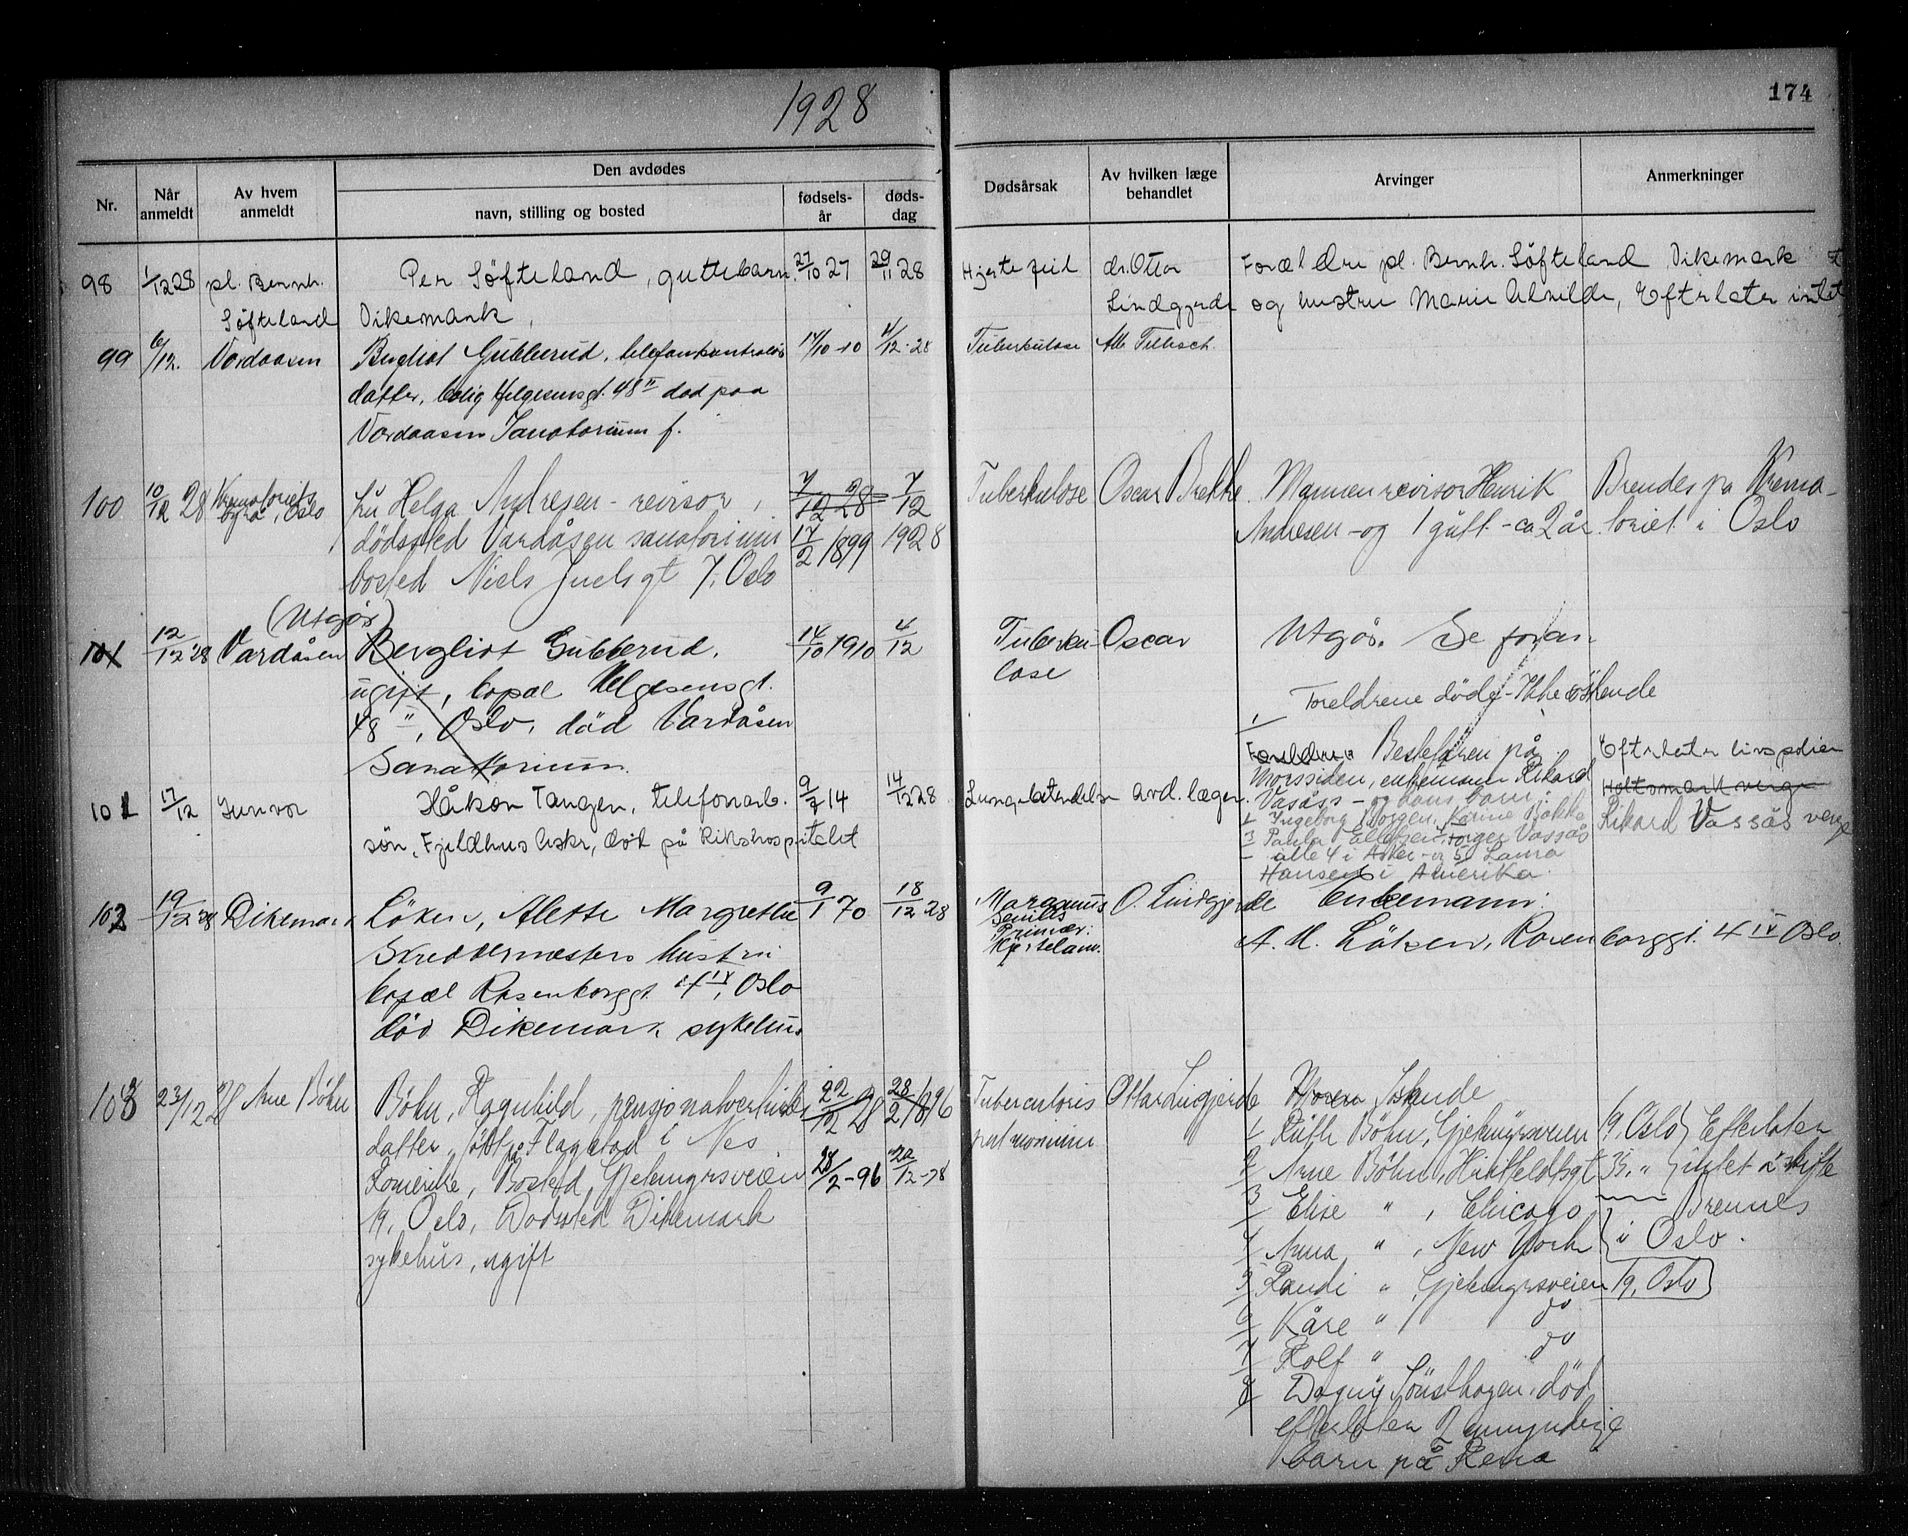 1928
174
Nr.
Når anmeldt
Av hvem anmeldt
Den avdødes
navn, stilling og bosted
fødsels-år
døds-dag
Dødsårsak
Av hvilken læge behandlet
Arvinger
Anmerkninger
98 1/12 28 pl. Bernh. Per Søfteland, guttebarn. 27/10 27 29/11 28 Hjertefeil dr. Ottar Foreldre pl. Bernh. Søfteland Dikemark
Søfteland Dikemark, Lindgjerde og hustru Marie Alvilde, Efterlater intet
99 6/12. Vardaasen Bergliot Gubberud, telefonkontrolørs 14/10-10 4/12-28 Tuberkulose
datter, bolig Helgesensgt. 48 II død paa
Vardaasen Sanatorium f.
100 10/12 28 Krematoriets fru Helga Andresen - revisor, 7/12 28 7/12 Tuberkulose Oscar Brekke. Mannen revisor Henrik Brendes på Krema-
byrå, Oslo dødssted Vardåsen sanatorium 17/2 1899 1928 Andresen - og 1 gutt - ca 2 år. toriet i Oslo
bosted Niels Juelsgt 7, Oslo
(Utgår)
101 12/12 28 Vardåsen Bergliot Gubberud. 14/10 1910 4/12 Tuberku- Oscar Utgår. Se foran
ugift, bopæl Helgesensgt. lose
48 II, Oslo, død Vardåsen
Sanatorium.
Foreldrene døde - Ikke søskende
Foreldrene Besteforen på Efterlater livspolise
Morssiden, enkemann Rikard Holtsmark verge
101 17/12 Gunvor Håkon Tangen, telefonarb. 9/7 14 14/12 28 Lungebetendelse avd. lægen. Vasåss - og hans barn: Rikard Vassås verge
søn, Fjeldhus Asker, død på Rikshospitalet
1 Ingeborg Borgen, 2 Karine Bakke
3 Paula Ellefsen, Torger Vassås
alle 4 i Asker - og 5) Laura
Hansen i Amerika
102 19/12 28 Dikemark Løken, Alette Margrethe 9/1 70 18/12 28 Marasmus O. Lindgjerde Enkemann:
Skreddermesters hustru senilis A. M. Løken, Rosenborggt. 4 IV Oslo.
bopæl Rosenborggt 4 IV, Oslo Primær:
død Dikemark sykehus Hjertelam.
103 23/12 28 Arne Bøhn Bøhn, Ragnhild, pensjonatvertindes 22/12 28 28/2 1896 Tuberculosis Ottar Lingjerde Moren Søskende
datter, født på Flagstad i Nes pulmonum 1 Ruth Bøhn, Gjetemyrsveien 19, Oslo Efterlater
Romerike, Bosted, Gjetemyrsveien 28/2-96 22/12-28 2 Arne Bøhn, Hietfeldtsgt 35. " intet å skifte
19, Oslo, Dødssted Dikemark 3 Elise " , Chicago Brennes
sykehus, ugift 4 Anna " , New York i Oslo.
5 Randi " , Gjetemyrsveien 19, Oslo
6 Kåre " do
7 Rolf " do
8 Dagny død
efterlater 2 umyndige
barn på Rena